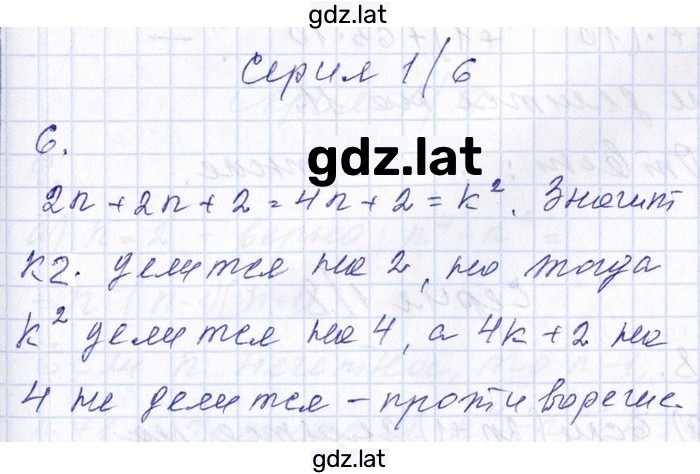 gdz.lat
Серия 1/6
6.
gdz.lat
2n + 2n + 2 = 4n + 2 = k². Значит
k2. делится на 2, но тогда
k² делится на 4, а 4k + 2 на
4 не делится – противоречие.
gdz.lat